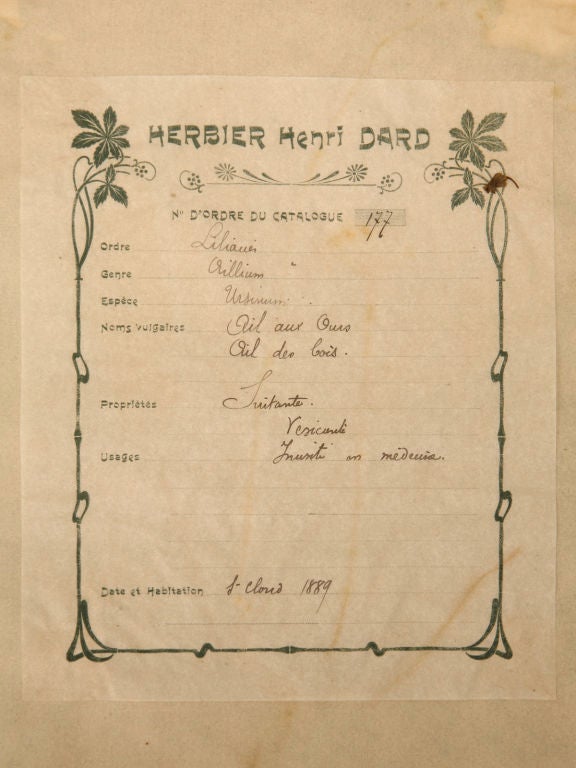 HERBIER Henri DARD
N° D'ORDRE DU CATALOGUE 177
Ordre Liliacées
Genre Aillium
Espèce Ursinum
Noms vulgaires Ail aux Ours
Ail des bois.
Propriétés Irritante.
Vesicante
Usages Inusité en médecine.
Date et Habitation St Cloud 1889